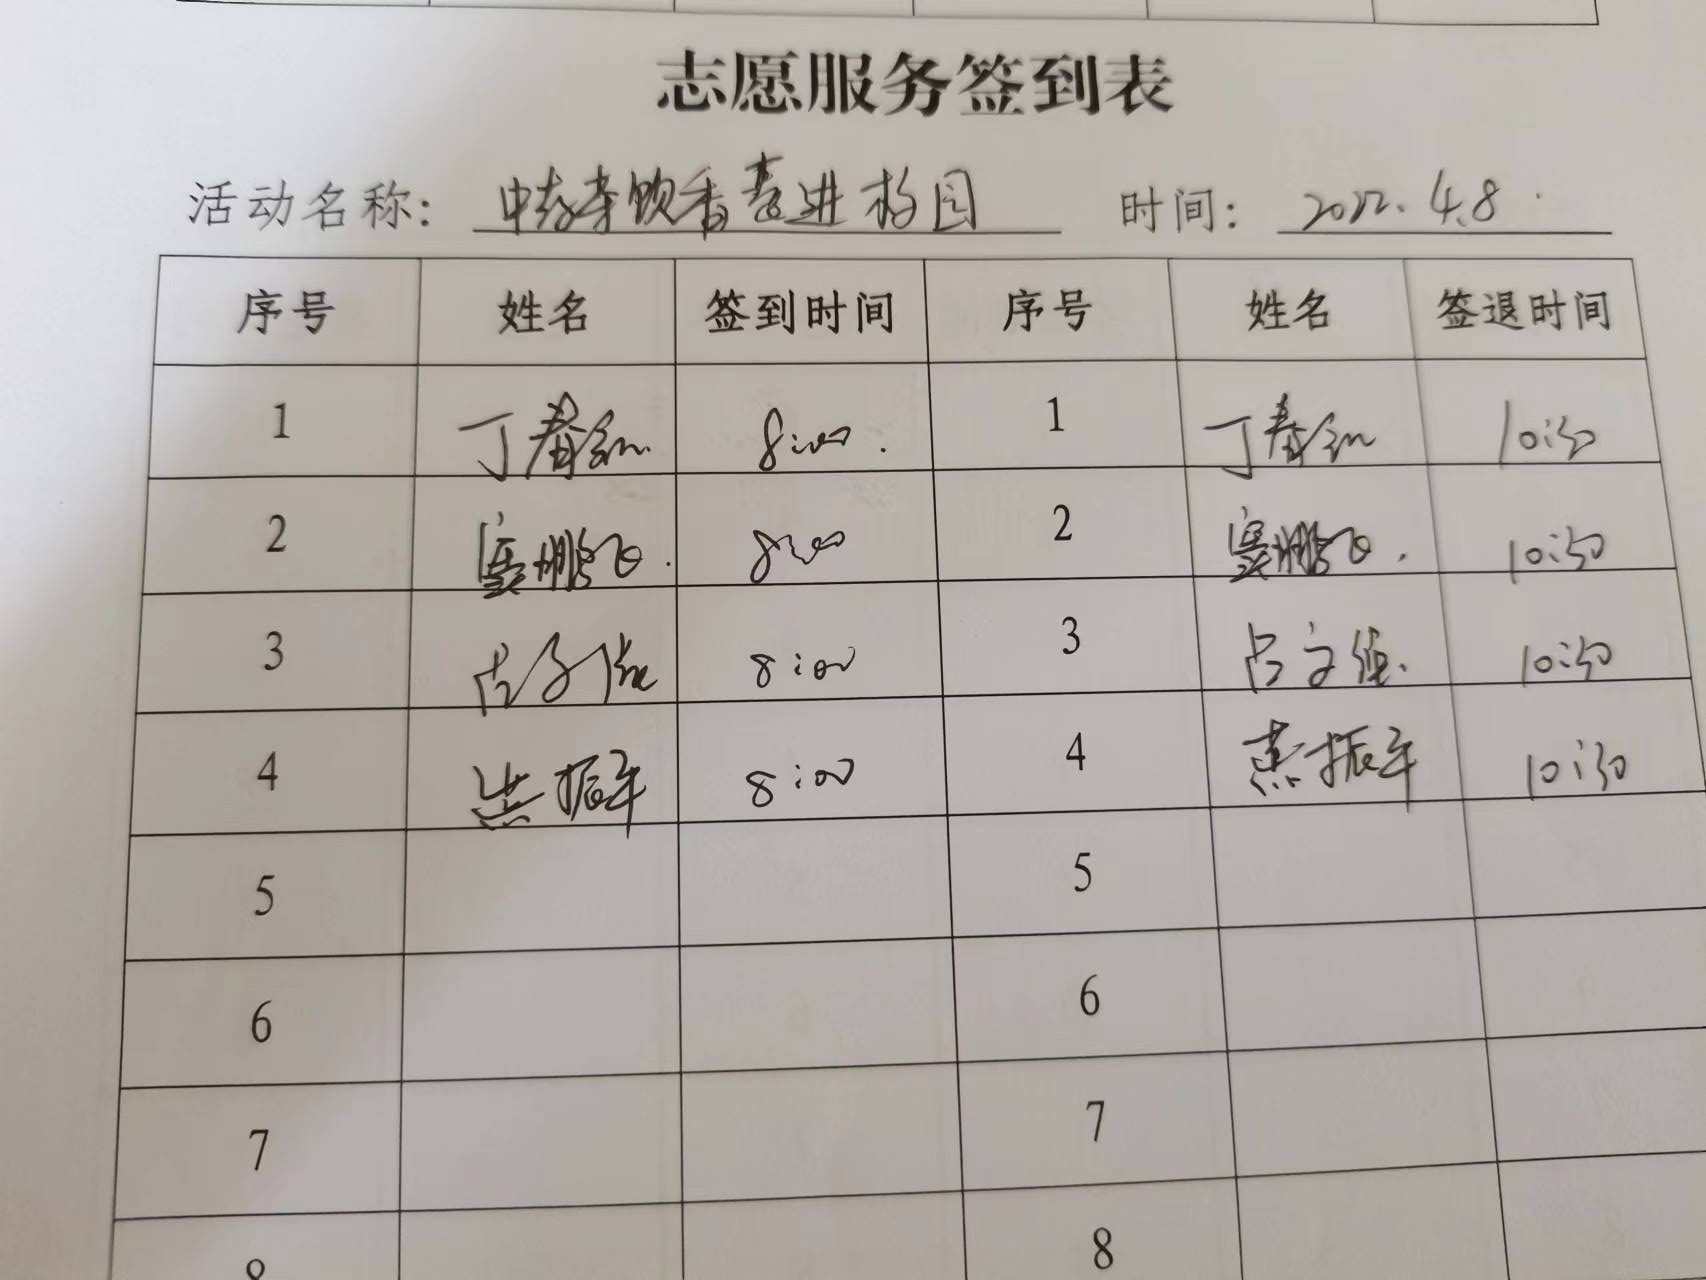 志愿服务签到表
活动名称: 中药茶饮香囊进校园 时间: 2022.4.8.
序号 姓名 签到时间 序号 姓名 签退时间
1 丁春 8:00. 1 丁春 10:30
2 鹏飞. 8:00 2 鹏飞. 10:30
3 占 8:00 3 占文 10:30
4 振军 8:00 4 振军 10:30
5 5
6 6
7 7
8 8